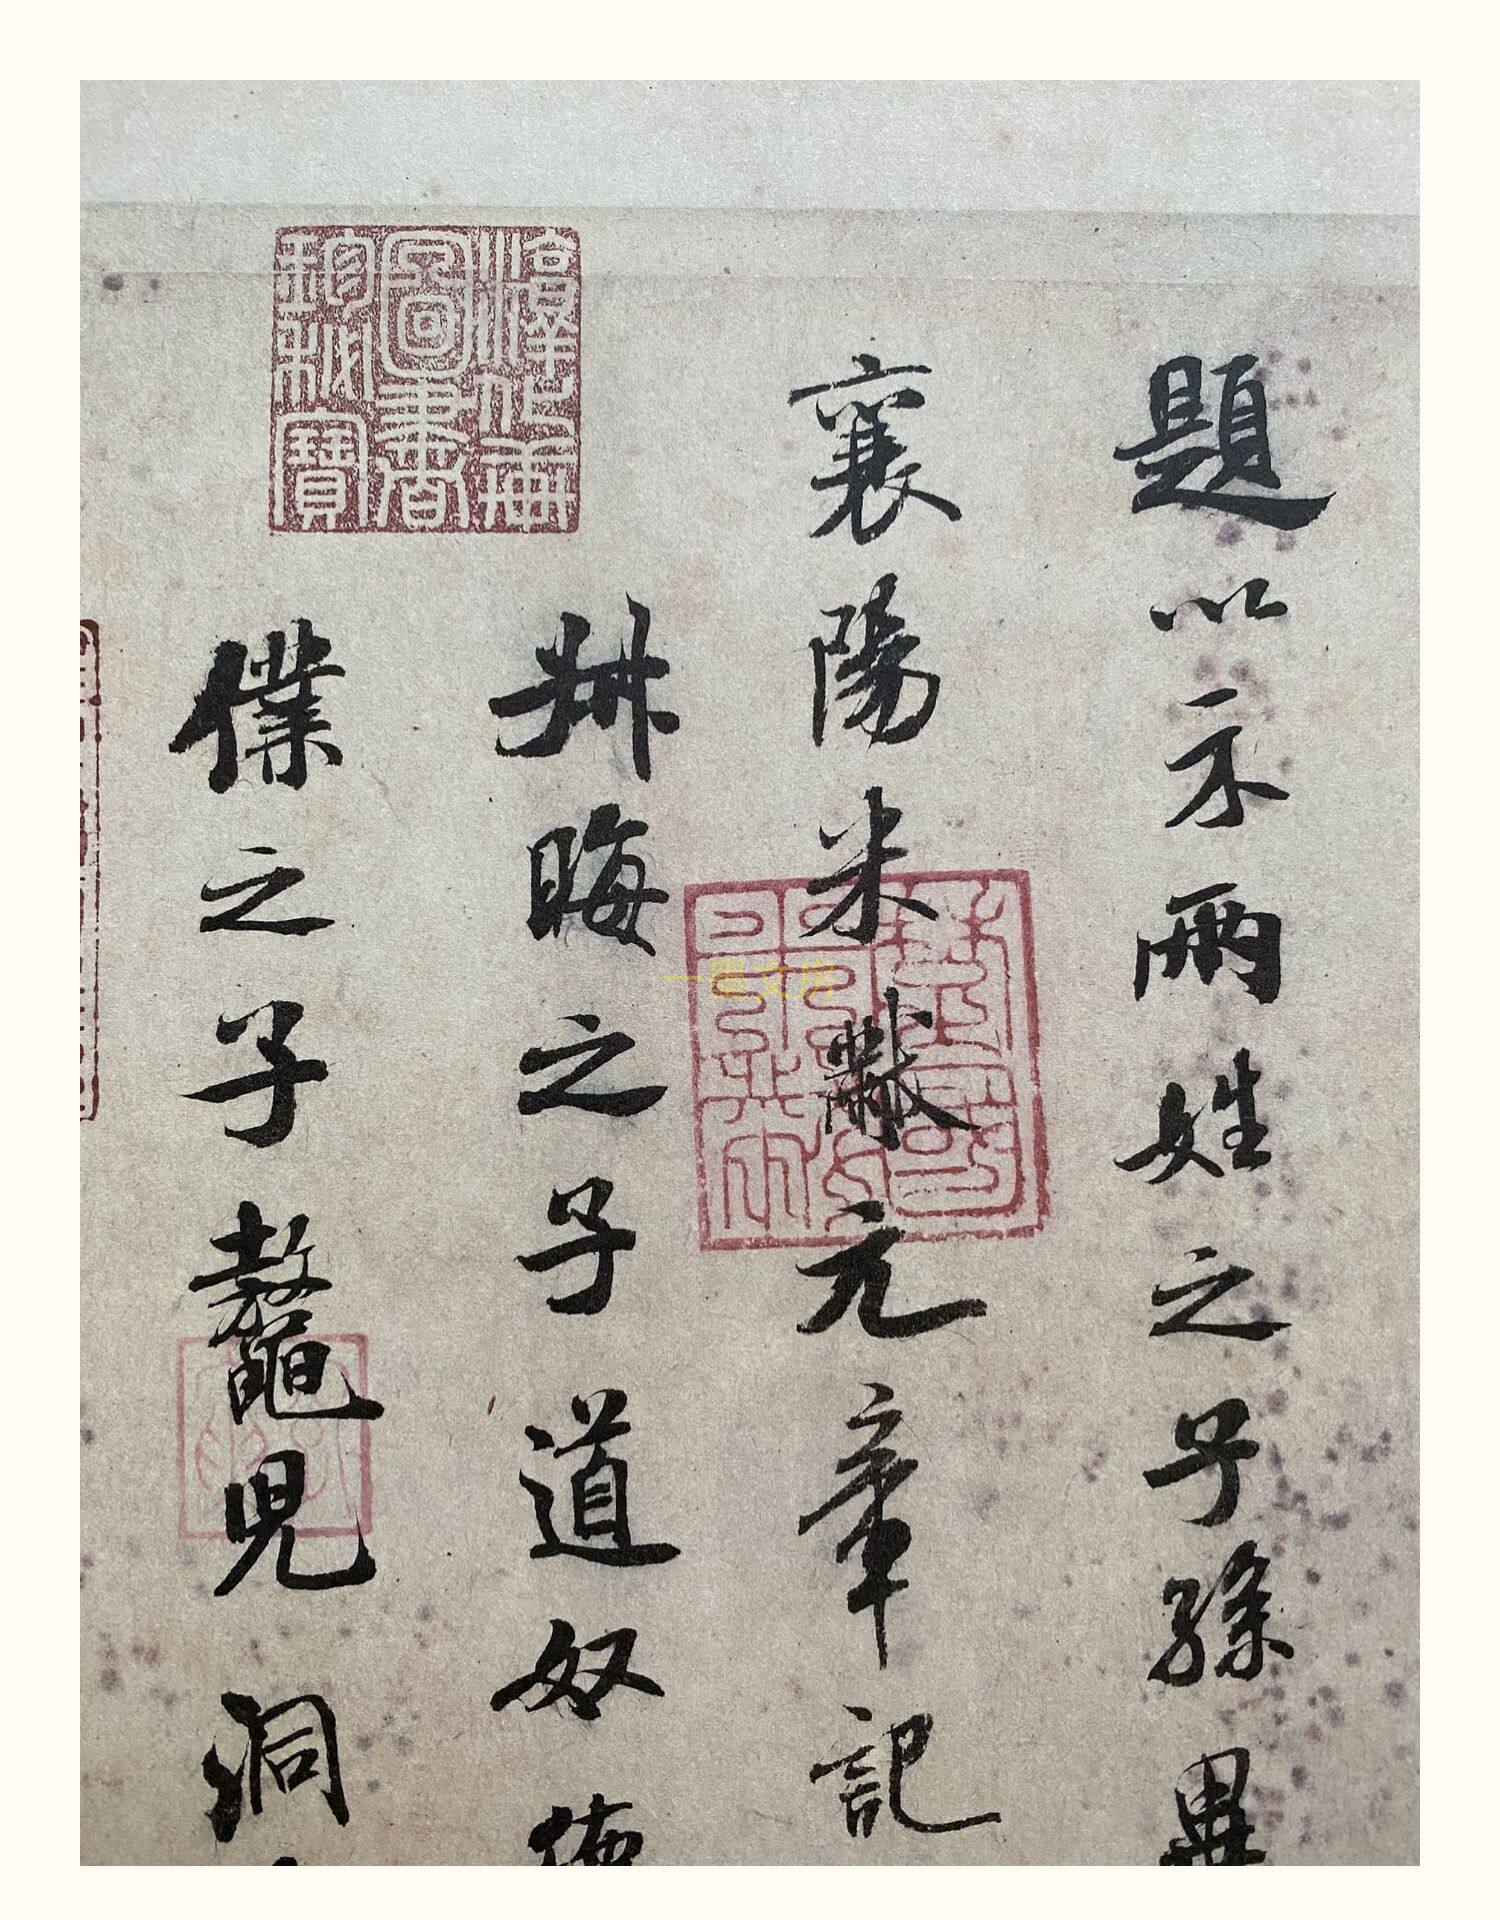 題以示兩姓之子孫異
襄陽米黻元章記
叔晦之子道奴德
僕之子鼇兒洞
淳化軒
圖書
珍秘寶
一墨文房